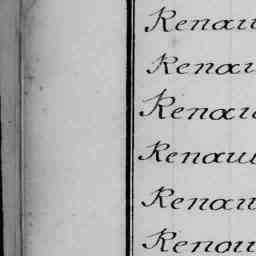 Renau
Renau
Renau
Renau
Renau
Renau